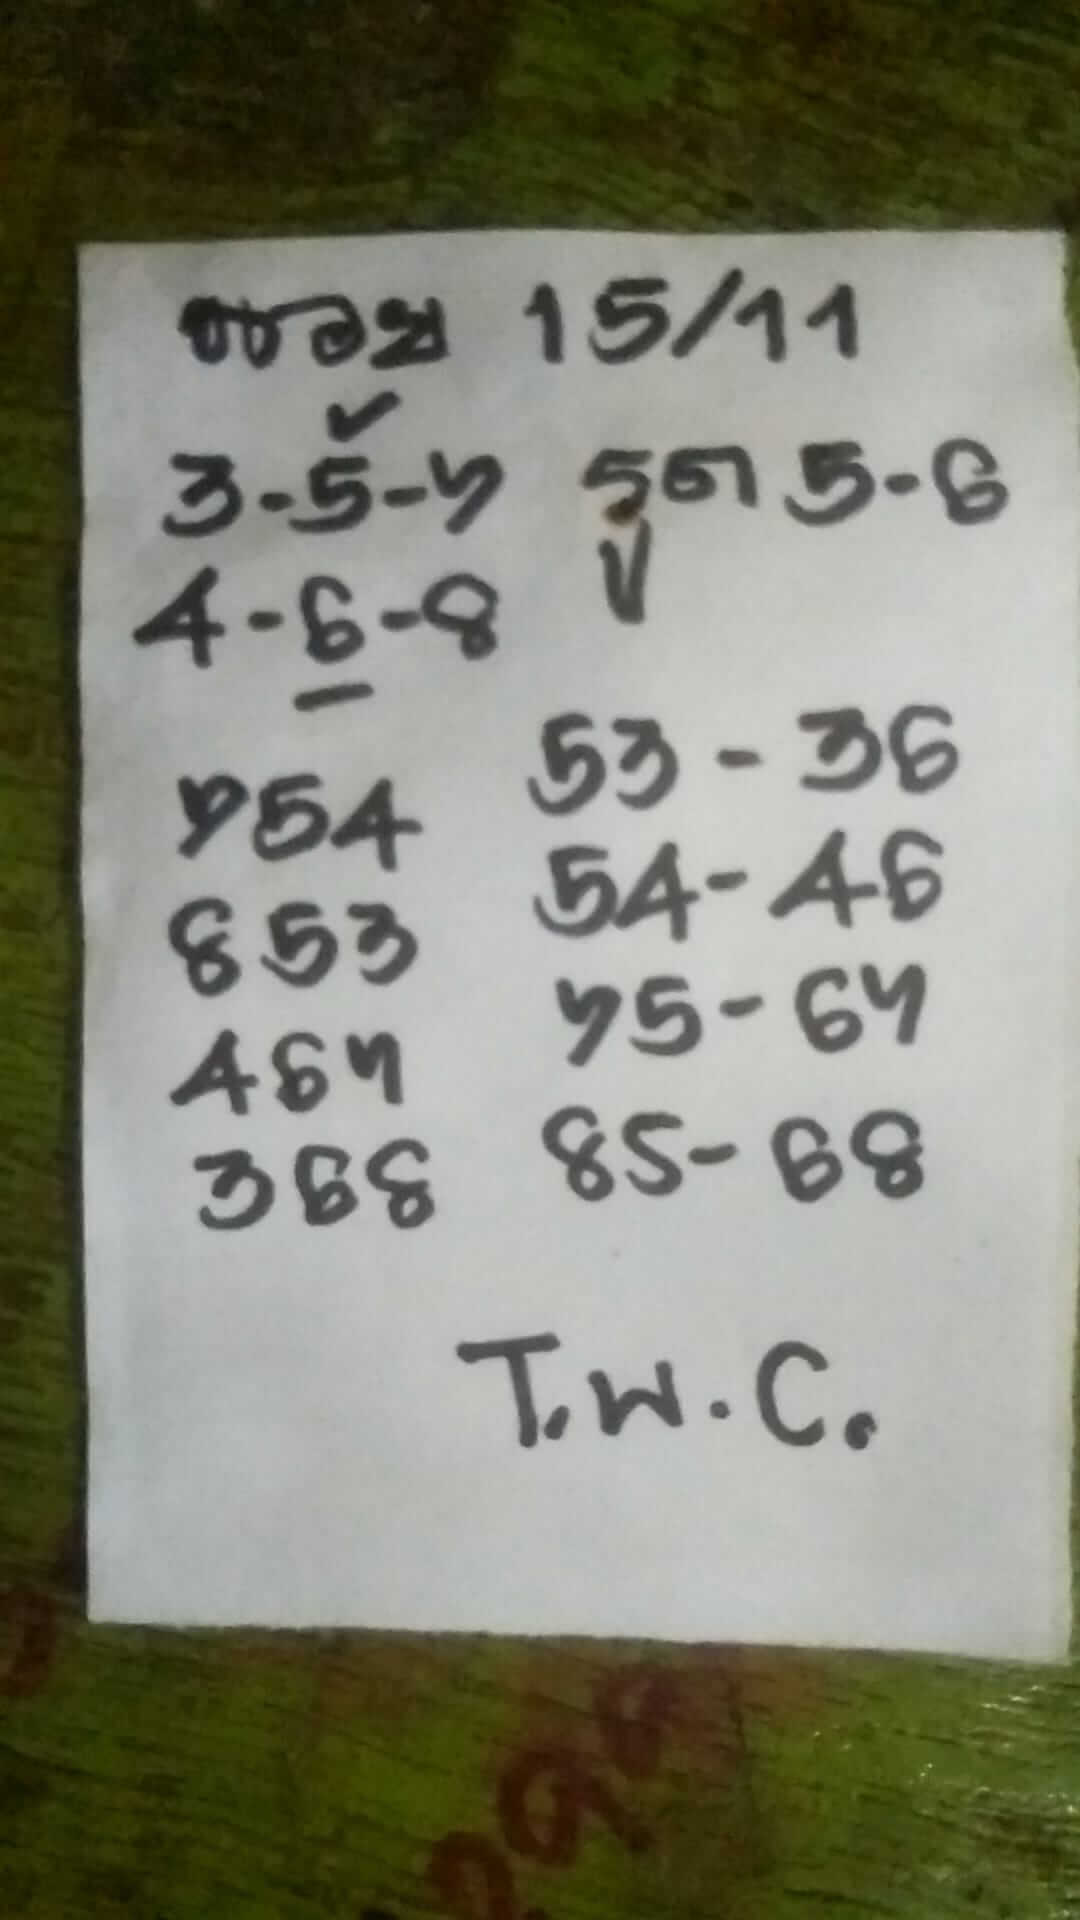 ฮอยฮ 15/11
3-5-7 รูด 5-6
4-6-8
754 53-36
853 54-46
467 75-67
368 85-68
T.W.C.